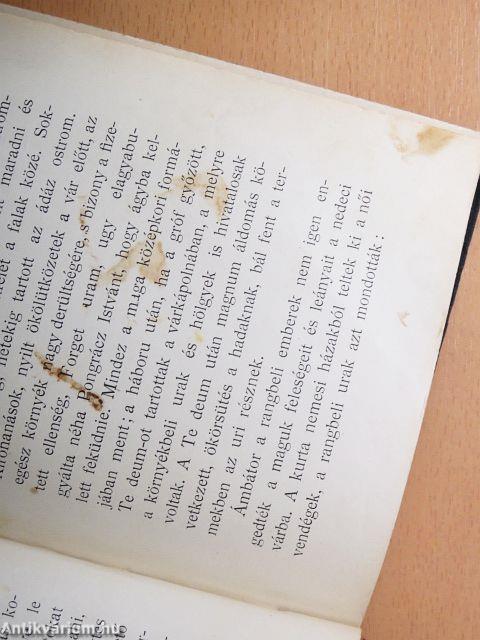 rom-
melet a falak közé. Sok-
maradni és
hetekig tartott az ádáz ostrom.
kirohanások, nyilt ökölütközetek a vár előtt, az
egész környék nagy derültségére, s bizony a fize-
tett ellenség, Forget uram, ugy elagyabu-
gyálta néha Pongrácz Istvánt, hogy ágyba kel-
lett feküdnie. Mindez a maga középkori formá-
jában ment; a háboru után, ha a gróf győzött,
Te deum-ot tartottak a várkápolnában, a melyre
a környékbeli urak és hölgyek is hivatalosak
voltak. A Te deum után magnum áldomás kö-
vetkezett, ökörsütés a hadaknak, bál fent a ter-
mekben az uri résznek.
Ámbátor a rangbeli emberek nem igen en-
gedték a maguk feleségeit és leányait a nedeci
várba. A kurta nemesi házakból teltek ki a női
vendégek, a rangbeli urak azt mondották:
ko-
le
Antikvárium.hu